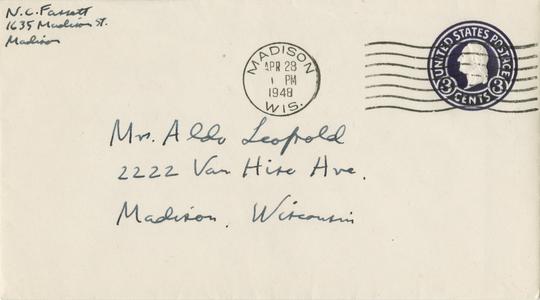 N.C. Fassett
1635 Madison St.
Madison
MADISON
APR 28
1 PM
1948
WIS.
UNITED STATES POSTAGE
3 CENTS 3
Mrs. Aldo Leopold
2222 Van Hise Ave.
Madison, Wisconsin